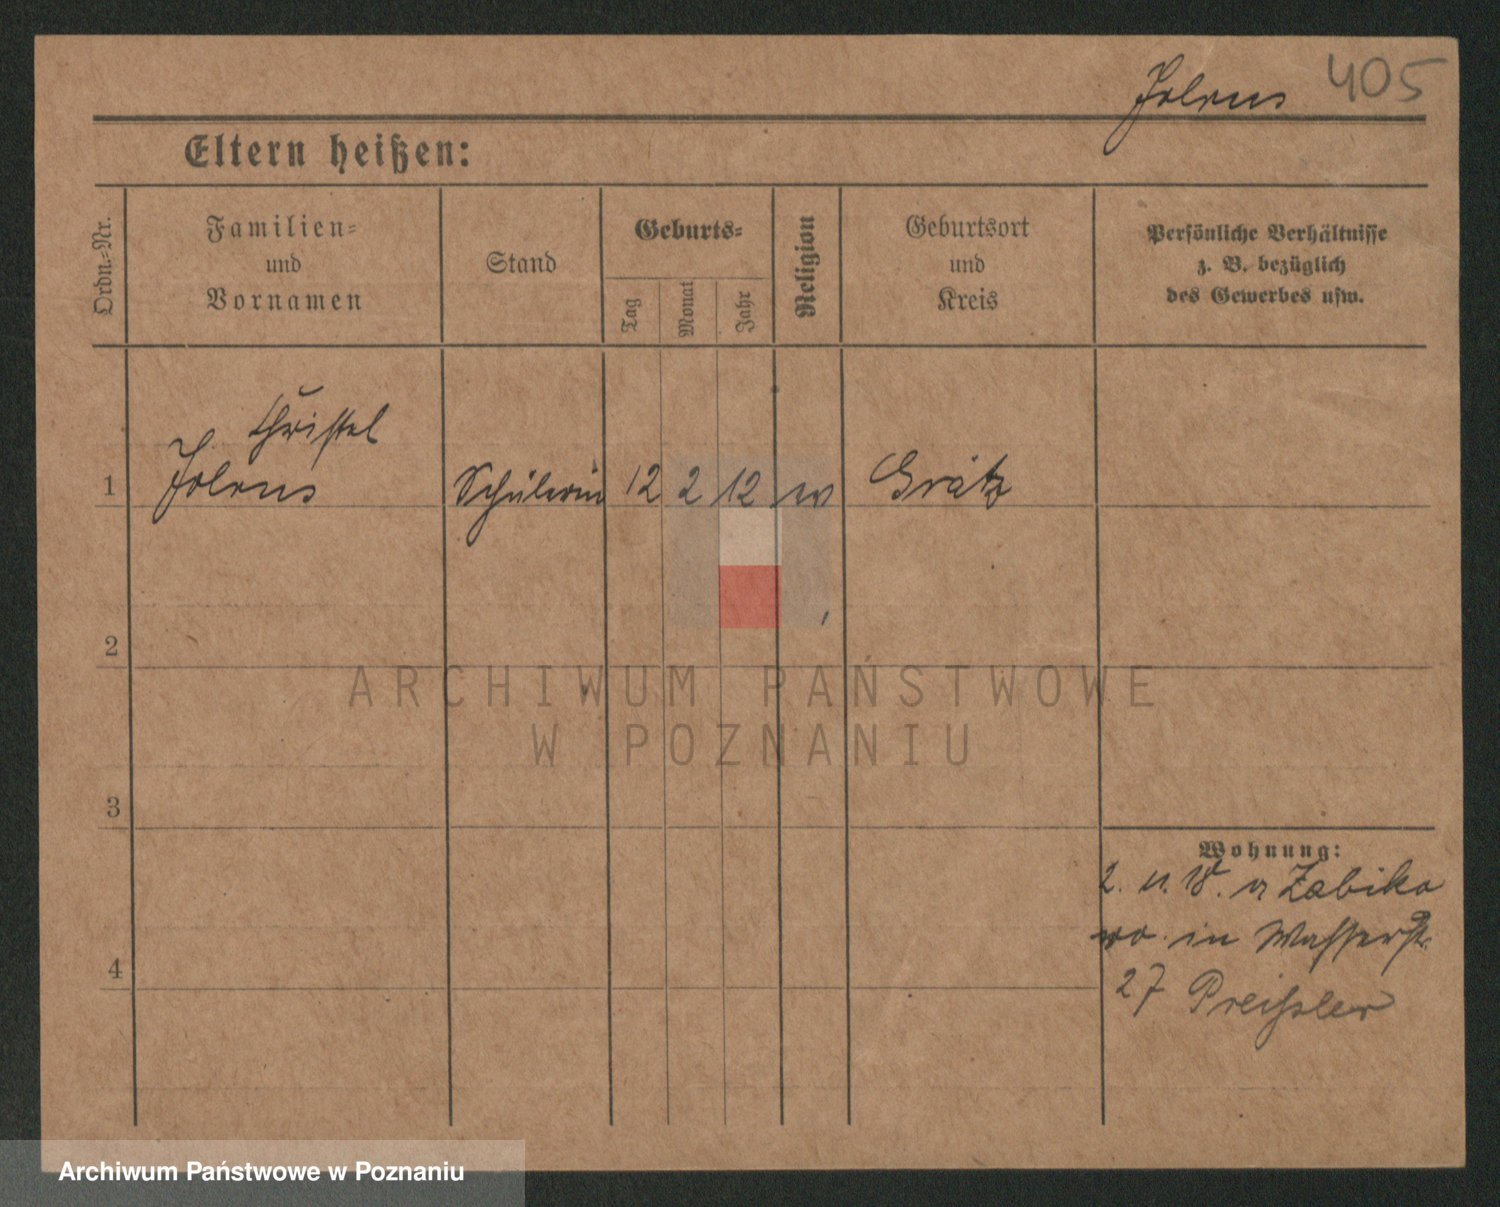 405
Eltern heißen:
Ordn.-Nr.
Familien-
und
Vornamen
Stand
Geburts-
Tag
Monat
Jahr
Religion
Geburtsort
und
Kreis
Persönliche Verhältnisse
z. B. bezüglich
des Gewerbes usw.
Christel
1 Schülerin 12 2 12 ev Grätz
2
3
4
Wohnung:
2. 11. 18. a Zabiko
wo in Wasserstr.
27 Preißler
ARCHIWUM PAŃSTWOWE
W POZNANIU
Archiwum Państwowe w Poznaniu